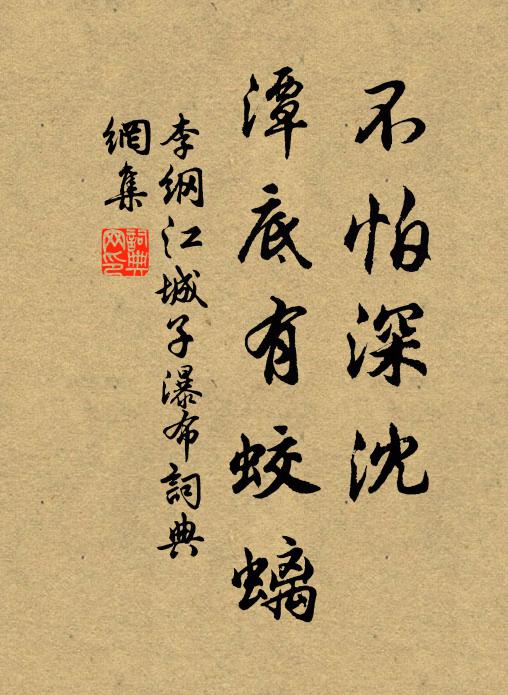 不怕深沈
潭底有蛟螭
李綱江城子瀑布詞典
網集
詞典
网印